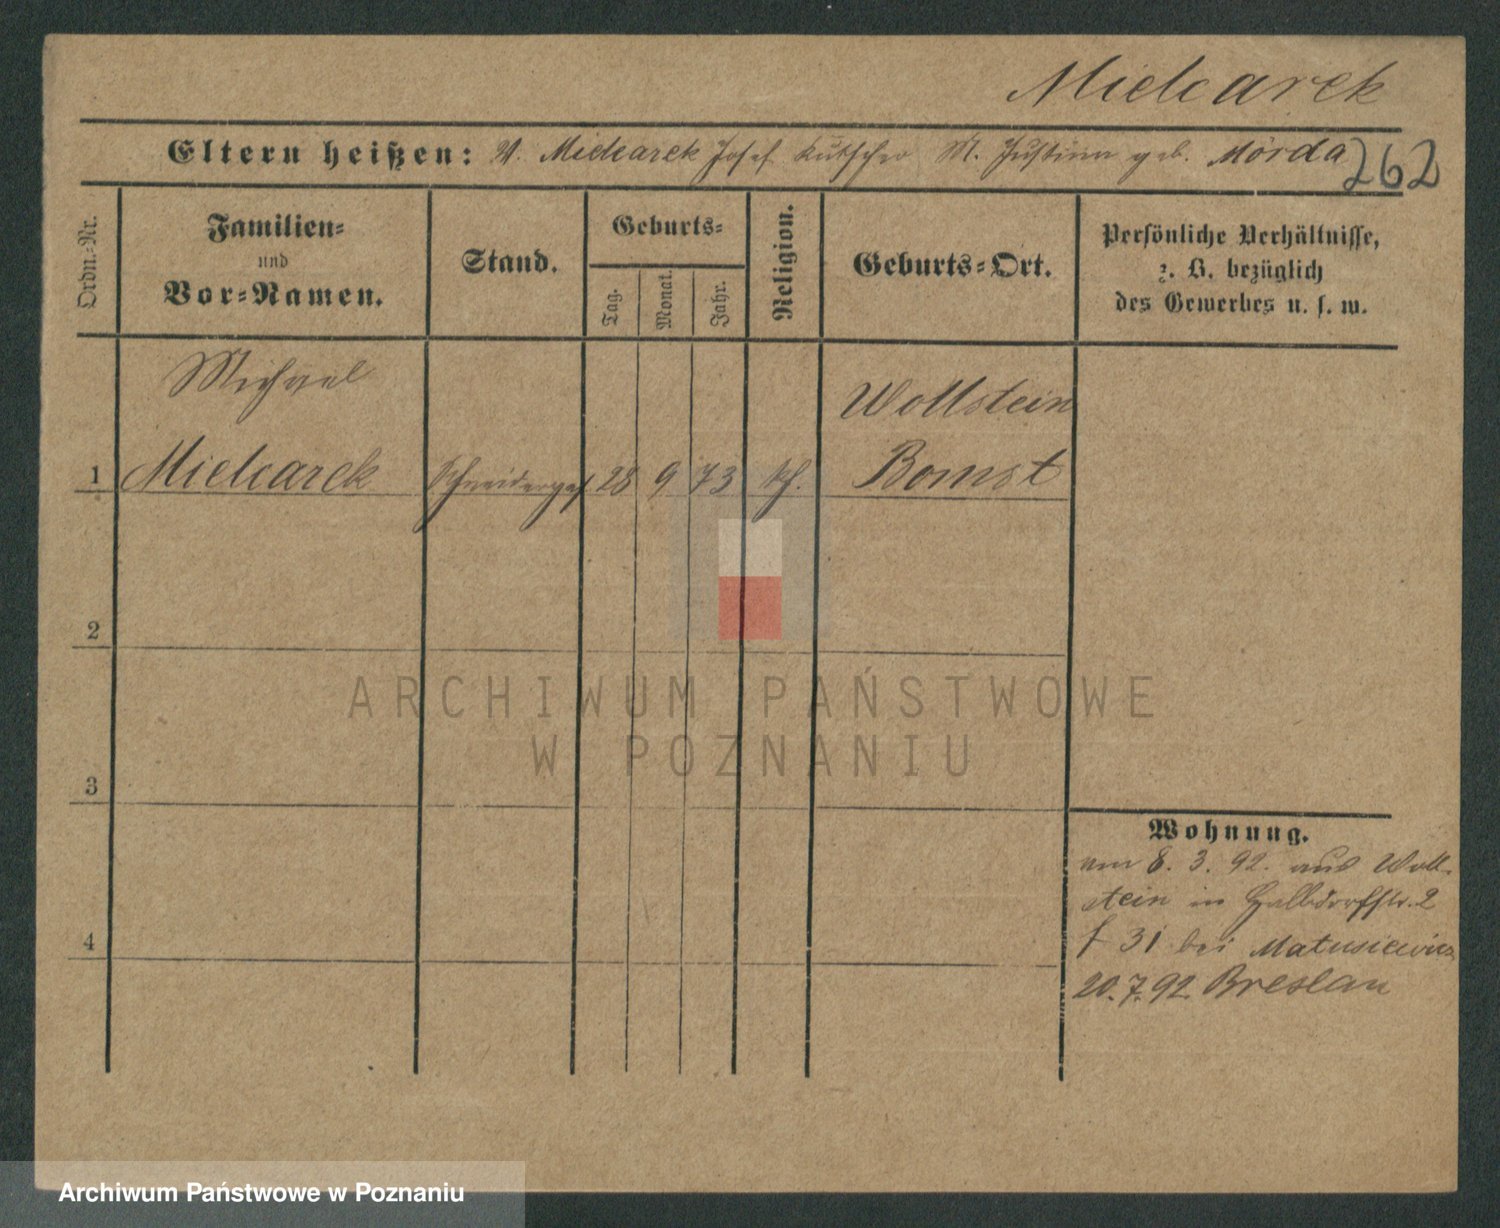 Mielcarek
Eltern heißen: V. Mielcarek Josef Kutscher M. Justina geb. Mórda
262
Ordn.-Nr.
Familien-
und
Vor-Namen.
Stand.
Geburts-
Tag.
Monat.
Jahr.
Religion.
Geburts-Ort.
Persönliche Verhältnisse,
z. B. bezüglich
des Gewerbes u. s. w.
Michael
Wollstein
1 Mielcarek Schneiderges 28 9 73 kth. Bomst
2
3
4
Wohnung.
am 8. 3. 92. aus Woll-
stein in Halbdorfstr. 2
f 31 bei Matusiewicz
20.7.92 Breslau
ARCHIWUM PAŃSTWOWE
W POZNANIU
Archiwum Państwowe w Poznaniu